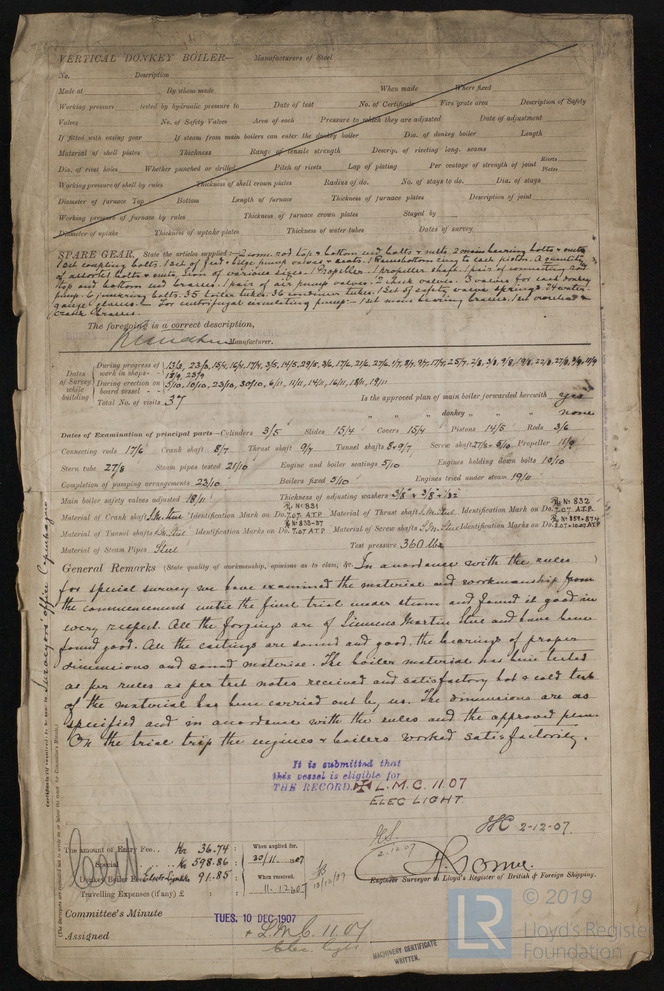 VERTICAL DONKEY BOILER— Manufacturers of Steel
No. Description
Made at By whom made When made Where fixed
Working pressure tested by hydraulic pressure to Date of test No. of Certificate Fire grate area Description of Safety
Valves No. of Safety Valves Area of each Pressure to which they are adjusted Date of adjustment
If fitted with easing gear If steam from main boilers can enter the donkey boiler Dia. of donkey boiler Length
Material of shell plates Thickness Range of tensile strength Descrip. of riveting long. seams
Dia. of rivet holes Whether punched or drilled Pitch of rivets Lap of plating Per centage of strength of joint Rivets Plates
Working pressure of shell by rules Thickness of shell crown plates Radius of do. No. of stays to do. Dia. of stays
Diameter of furnace Top Bottom Length of furnace Thickness of furnace plates Description of joint
Working pressure of furnace by rules Thickness of furnace crown plates Stayed by
Diameter of uptake Thickness of uptake plates Thickness of water tubes Dates of survey
SPARE GEAR. State the articles supplied:— 2 conn. rod top & bottom end bolts & nuts, 2 main bearing bolts & nuts
1 set coupling bolts. 1 set of feed & bilge pump valves & seats. 1 Ramsbottom ring to each piston. A quantity
of assorted bolts & nuts, Iron of various sizes. 1 Propeller. 1 propeller shaft. 1 pair of connecting rod
top and bottom end brasses. 1 pair of air pump valves. 2 check valves. 3 valves for each donkey
pump. 6 junk ring bolts. 35 boiler tubes. 36 condenser tubes. 1 set of safety valve springs. 24 water
gauge glasses. For centrifugal circulating pump:— 1 set main bearing brasses. 1 set crosshead &
crank brasses.
The foregoing is a correct description,
Manufacturer.
Dates of Survey while building
During progress of work in shops-- 13/3, 23/3, 15/4, 16/4, 17/4, 3/5, 14/5, 29/5, 3/6, 17/6, 21/6, 27/6, 1/7, 8/7, 9/7, 17/7, 25/7, 2/8, 3/8, 9/8, 19/8, 22/8, 27/8, 9/9, 11/9
13/9, 23/9
During erection on board vessel--- 5/10, 10/10, 23/10, 30/10, 6/11, 11/11, 14/11, 16/11, 18/11, 19/11
Total No. of visits 37 Is the approved plan of main boiler forwarded herewith yes
" " " donkey " " none
Dates of Examination of principal parts—Cylinders 3/5 Slides 15/4 Covers 15/4 Pistons 14/5 Rods 3/6
Connecting rods 17/6 Crank shaft 8/7 Thrust shaft 9/7 Tunnel shafts 8 & 9/7 Screw shaft 27/8 & 5/10 Propeller 11/9
Stern tube 27/8 Steam pipes tested 21/10 Engine and boiler seatings 5/10 Engines holding down bolts 10/10
Completion of pumping arrangements 23/10 Boilers fixed 5/10 Engines tried under steam 19/10
Main boiler safety valves adjusted 18/11 Thickness of adjusting washers 3/8" & 3/8" & 1/32
Material of Crank shaft S.M. Steel Identification Mark on Do. No 831 7.07. A.T.P. Material of Thrust shaft S.M. Steel Identification Mark on Do. No 832 7.07. A.T.P.
Material of Tunnel shafts S.M. Steel Identification Marks on Do. No 833-37 7.07 A.T.P Material of Screw shafts S.M. Steel Identification Marks on Do.
Material of Steam Pipes Steel Test pressure 360 lbs.
General Remarks (State quality of workmanship, opinions as to class, &c. In accordance with the rules
for special survey we have examined the material and workmanship from
the commencement until the final trial under steam and found it good in
every respect. All the forgings are of Siemens Martin steel and have been
found good. All the castings are sound and good, the bearings of proper
dimensions and sound material. The boiler material has been tested
as per rules as per test notes received and satisfactory hot & cold tests
of the material has been carried out by us. The dimensions are as
specified and in accordance with the rules and the approved plan.
On the trial trip the engines & boilers worked satisfactorily.
It is submitted that
this vessel is eligible for
THE RECORD. ✠ L.M.C. 11.07
ELEC LIGHT.
2-12-07.
2.12.07
The amount of Entry Fee.. Kr 36.74 : When applied for,
Special .. .. Kr 598.86 : 30/11 1907
Donkey Boiler Fee Electric Light 91.85 : When received,
Travelling Expenses (if any) £ : : 11.12.07
13/12/07
Engineer Surveyor to Lloyd's Register of British & Foreign Shipping.
Committee's Minute TUES. 10 DEC 1907
Assigned + L.M.C. 11.07
Elec. Light
MACHINERY CERTIFICATE
WRITTEN.
Surveyors' office Copenhagen
© 2019
LR
Lloyd's Register
Foundation